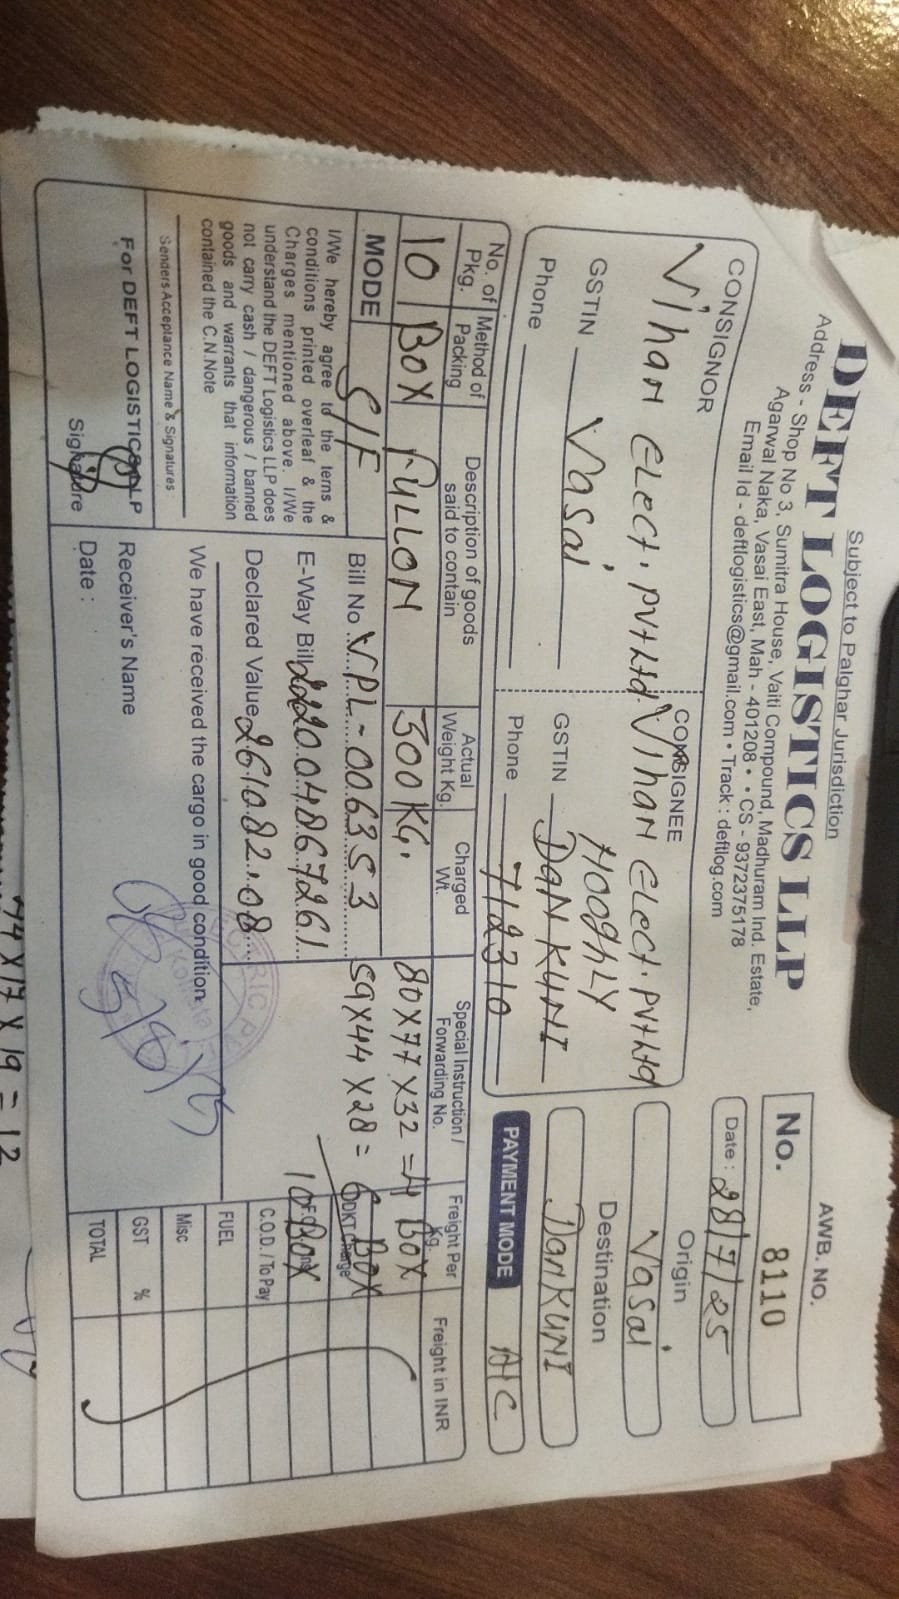 Subject to Palghar Jurisdiction
DEFT LOGISTICS LLP
Address - Shop No 3, Sumitra House, Vaiti Compound, Madhuram Ind. Estate,
Agarwal Naka, Vasai East, Mah - 401208 • • CS - 9372375178
Email Id - deftlogistics@gmail.com • Track : deftlog.com
AWB. NO.
No. 8110
Date : 28/7/25
CONSIGNOR
Vihan Elect. Pvt Ltd
GSTIN Vasai
Phone
CONSIGNEE
Vihan Elect. Pvt Ltd
HooghLY
GSTIN DaNKUNI
Phone 712310
Origin
Vasai
Destination
DanKUNI
PAYMENT MODE A/C
No. of Pkg.
Method of Packing
Description of goods said to contain
Actual Weight Kg.
Charged Wt.
Special Instruction / Forwarding No.
Freight Per Kg.
Freight in INR
10 BOX FULLON 300 KG. 80X77X32 = 4 BOX
59X44X28 = 6 BOX
10 BOX
MODE S/F
Bill No. VPL-006353
E-Way Bill 222004867261
Declared Value 261082.08
DKT Charge
C.O.D. / To Pay
FUEL
Misc
GST %
TOTAL
I/We hereby agree to the terns &
conditions printed overleaf & the
Charges mentioned above. I/We
understand the DEFT Logistics LLP does
not carry cash / dangerous / banned
goods and warrants that information
contained the C.N.Note
Senders Acceptance Name & Signatures
For DEFT LOGISTICS LLP
Signature
We have received the cargo in good condition.
Receiver's Name
Date :
X17 X 19 = 12